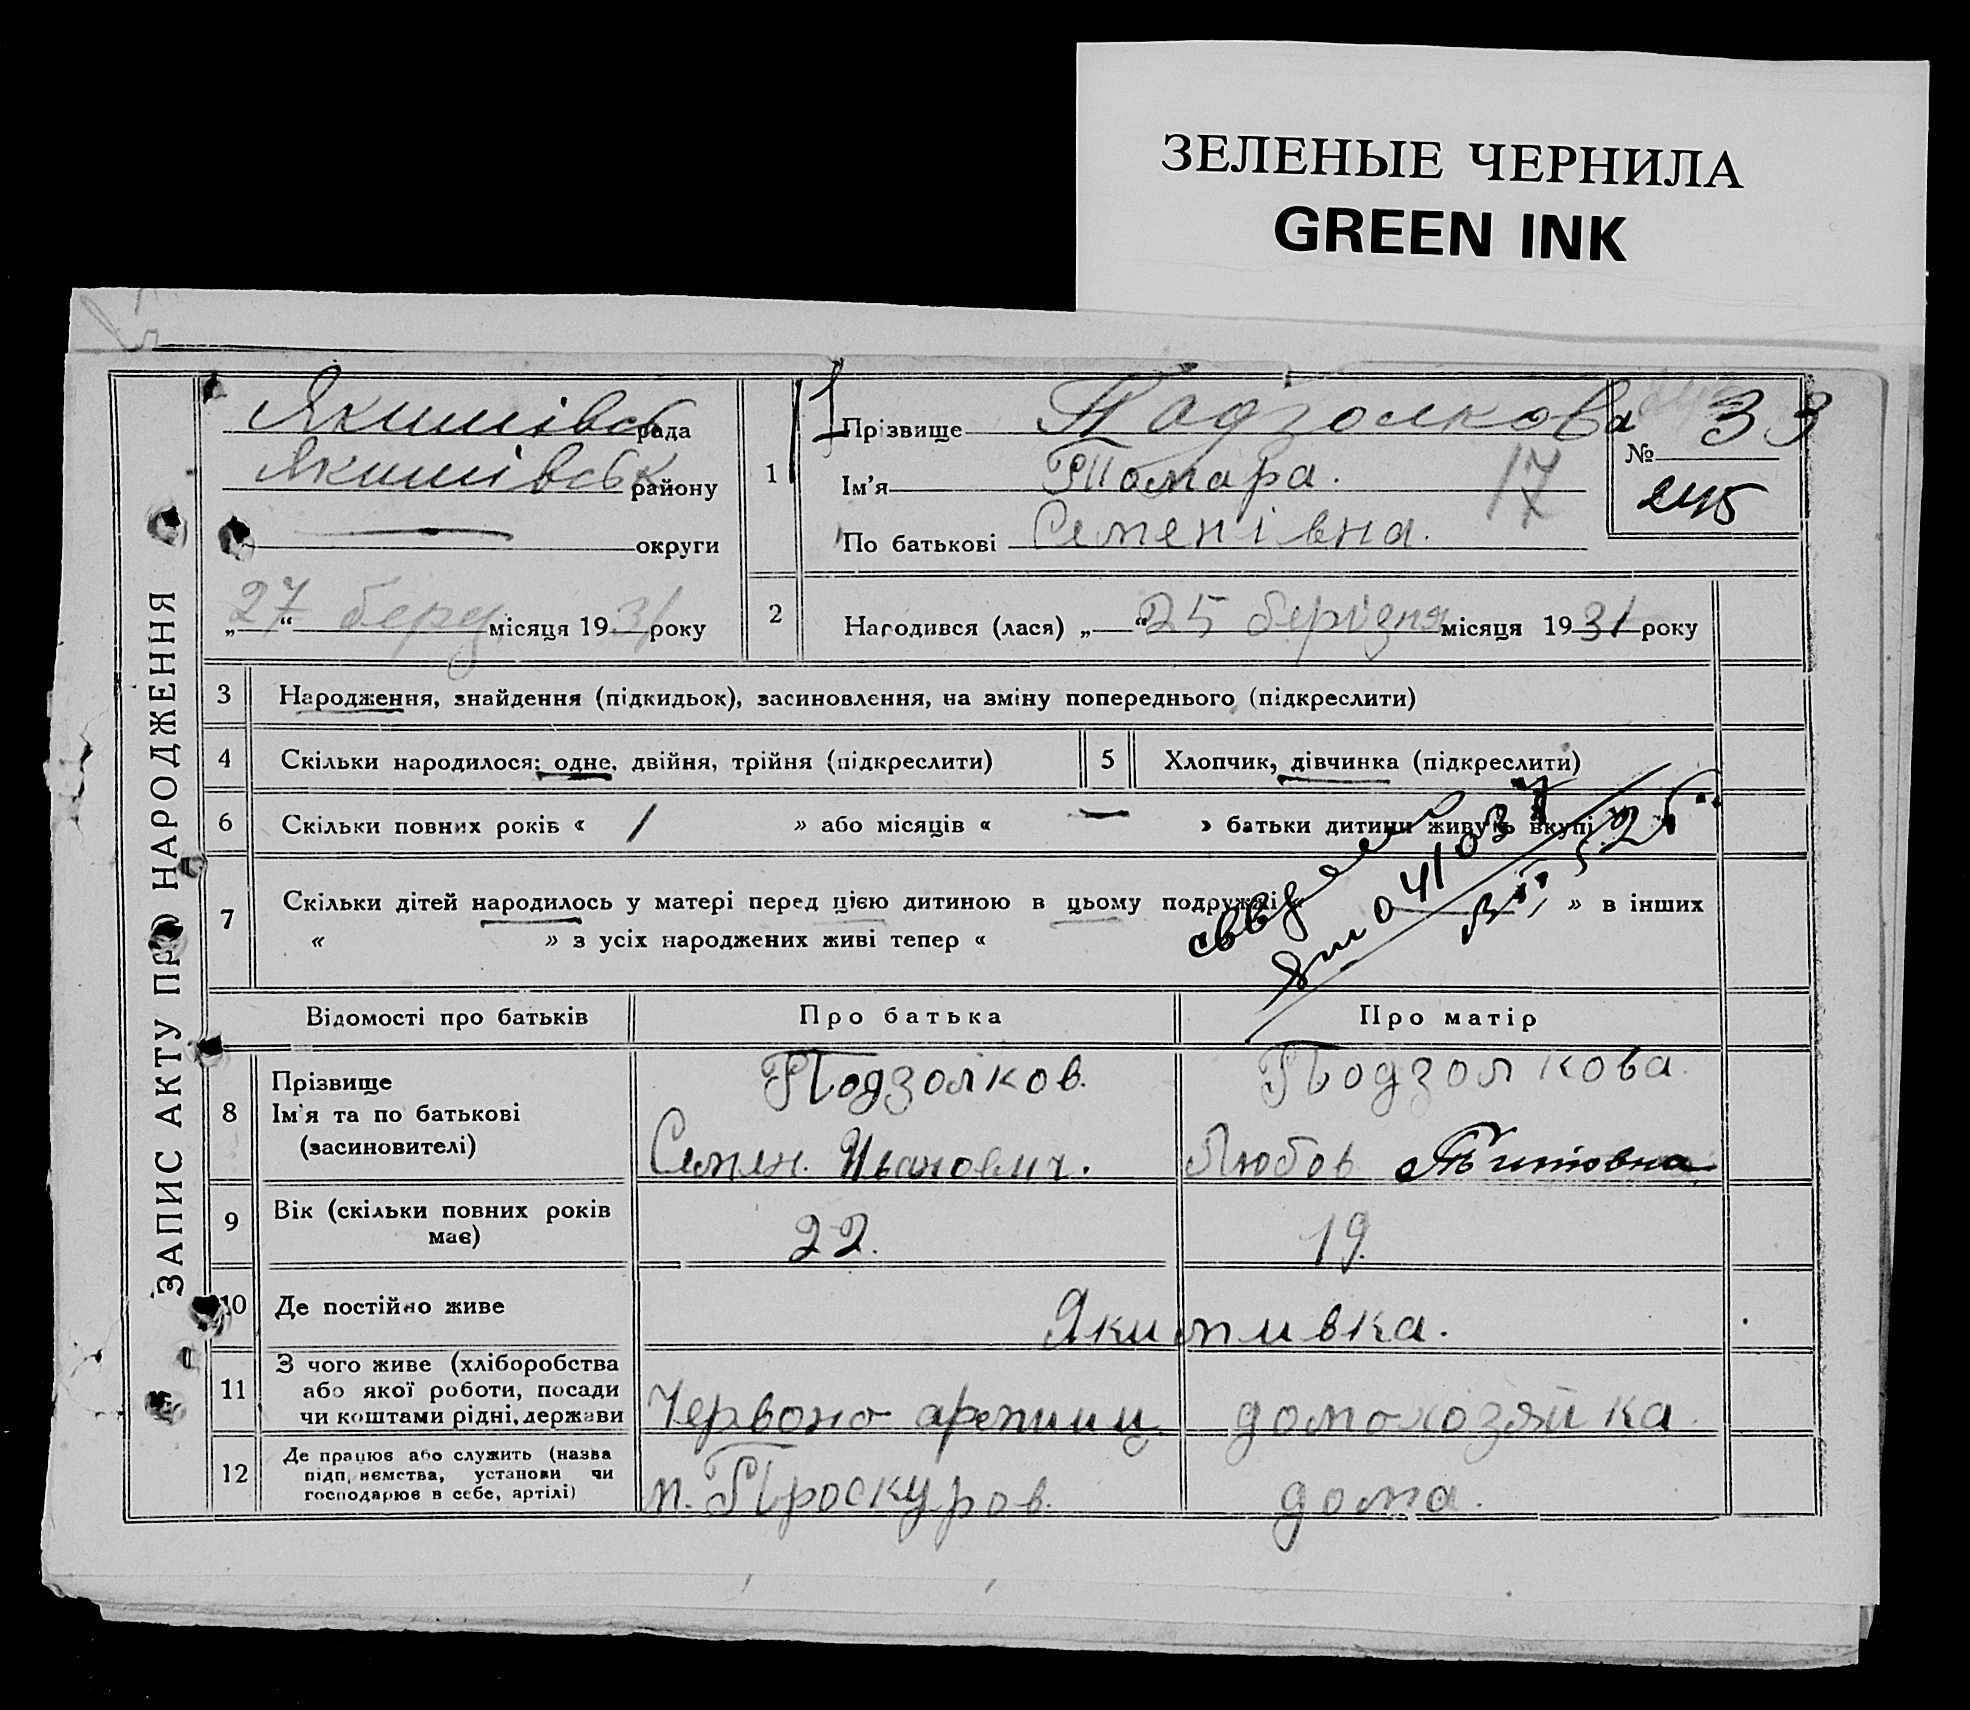 ЗЕЛЕНЫЕ ЧЕРНИЛА
GREEN INK
ЗАПИС АКТУ ПРО НАРОДЖЕННЯ
Якимівськ рада
Якимівськ району
— округи
„27“ берез місяця 1931 року
1
Прізвище Подзолкова
Ім'я Томара.
По батькові Семенівна.
17
33
№
245
2
Народився (лася) „25“ березня місяця 1931 року
3 Народження, знайдення (підкидьок), засиновлення, на зміну попереднього (підкреслити)
4 Скільки народилося: одне, двійня, трійня (підкреслити)
5 Хлопчик, дівчинка (підкреслити)
6 Скільки повних років « 1 » або місяців « — » батьки дитини живуть вкупі
7 Скільки дітей народилось у матері перед цією дитиною в цьому подружжі » в інших
« » з усіх народжених живі тепер «
041037
Відомості про батьків Про батька Про матір
8
Прізвище
Ім'я та по батькові
(засиновителі)
Подзолков.
Семен. Иванович.
Подзолкова.
Любов Титовна
9 Вік (скільки повних років має)
22.
19.
10 Де постійно живе
Якимивка.
11 З чого живе (хліборобства
або якої роботи, посади
чи коштами рідні, держави
Червоно армииц
домохозяйка.
12 Де працює або служить (назва
підприємства, установи чи
господарює в себе, артілі)
м. Проскуров.
дома.